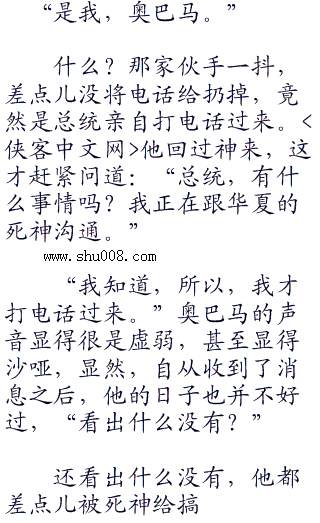 “是我，奥巴马。”
什么？那家伙手一抖，
差点儿没将电话给扔掉，竟
然是总统亲自打电话过来。<
侠客中文网>他回过神来，这
才赶紧问道：“总统，有什
么事情吗？我正在跟华夏的
死神沟通。”
www.shu008.com
“我知道，所以，我才
打电话过来。”奥巴马的声
音显得很是虚弱，甚至显得
沙哑，显然，自从收到了消
息之后，他的日子也并不好
过，“看出什么没有？”
还看出什么没有，他都
差点儿被死神给搞